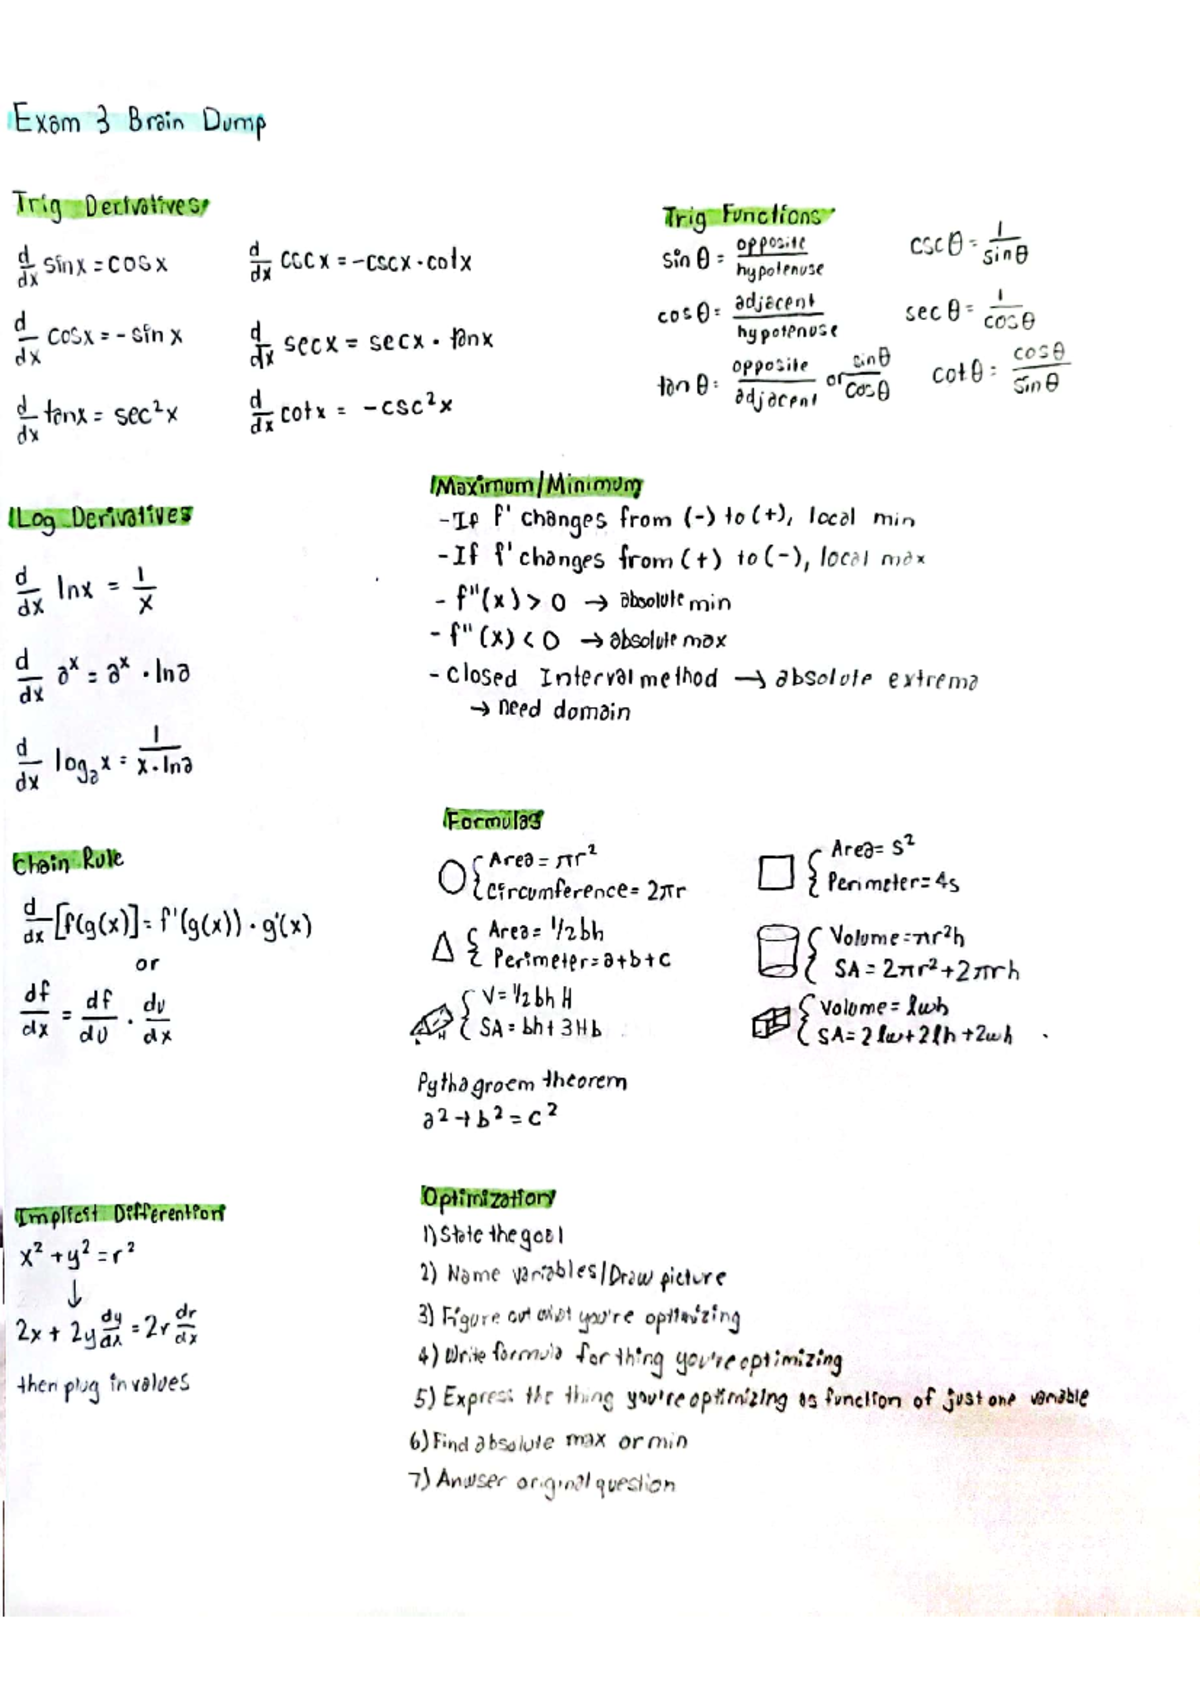 Exam 3 Brain Dump
Trig Derivatives
d/dx sinx = cosx
d/dx cscx = -cscx · cotx
d/dx cosx = - sin x
d/dx secx = secx · tanx
d/dx tanx = sec²x
d/dx cotx = -csc²x
Trig Functions
sin θ = opposite/hypotenuse
cscθ = 1/sinθ
cosθ = adjacent/hypotenuse
sec θ = 1/cosθ
tan θ = opposite/adjacent or sinθ/cosθ
cotθ = cosθ/sinθ
Log Derivatives
d/dx lnx = 1/x
d/dx aˣ = aˣ · lna
d/dx logₐx = 1/x·lna
Maximum/Minimum
-If f' changes from (-) to (+), local min
-If f' changes from (+) to (-), local max
- f"(x) > 0 → absolute min
- f"(x) < 0 → absolute max
- Closed Interval method → absolute extrema
→ need domain
Chain Rule
d/dx [f(g(x)] = f'(g(x)) · g'(x)
or
df/dx = df/du · du/dx
Formulas
Area = πr²
Circumference = 2πr
Area = s²
Perimeter = 4s
Area = 1/2bh
Perimeter = a+b+c
Volume = πr²h
SA = 2πr²+2πrh
V = 1/2 bh H
SA = bh + 3Hb
Volume = lwh
SA = 2lw+2lh+2wh
Pythagroem theorem
a²+b² = c²
Implicit Differention
x² + y² = r²
↓
2x + 2y dy/dx = 2r dr/dx
then plug in values
Optimization
1) State the goal
2) Name variables/Draw picture
3) Figure out what you're optimizing
4) Write formula for thing you're optimizing
5) Express the thing you're optimizing as function of just one variable
6) Find absolute max or min
7) Anwser original question